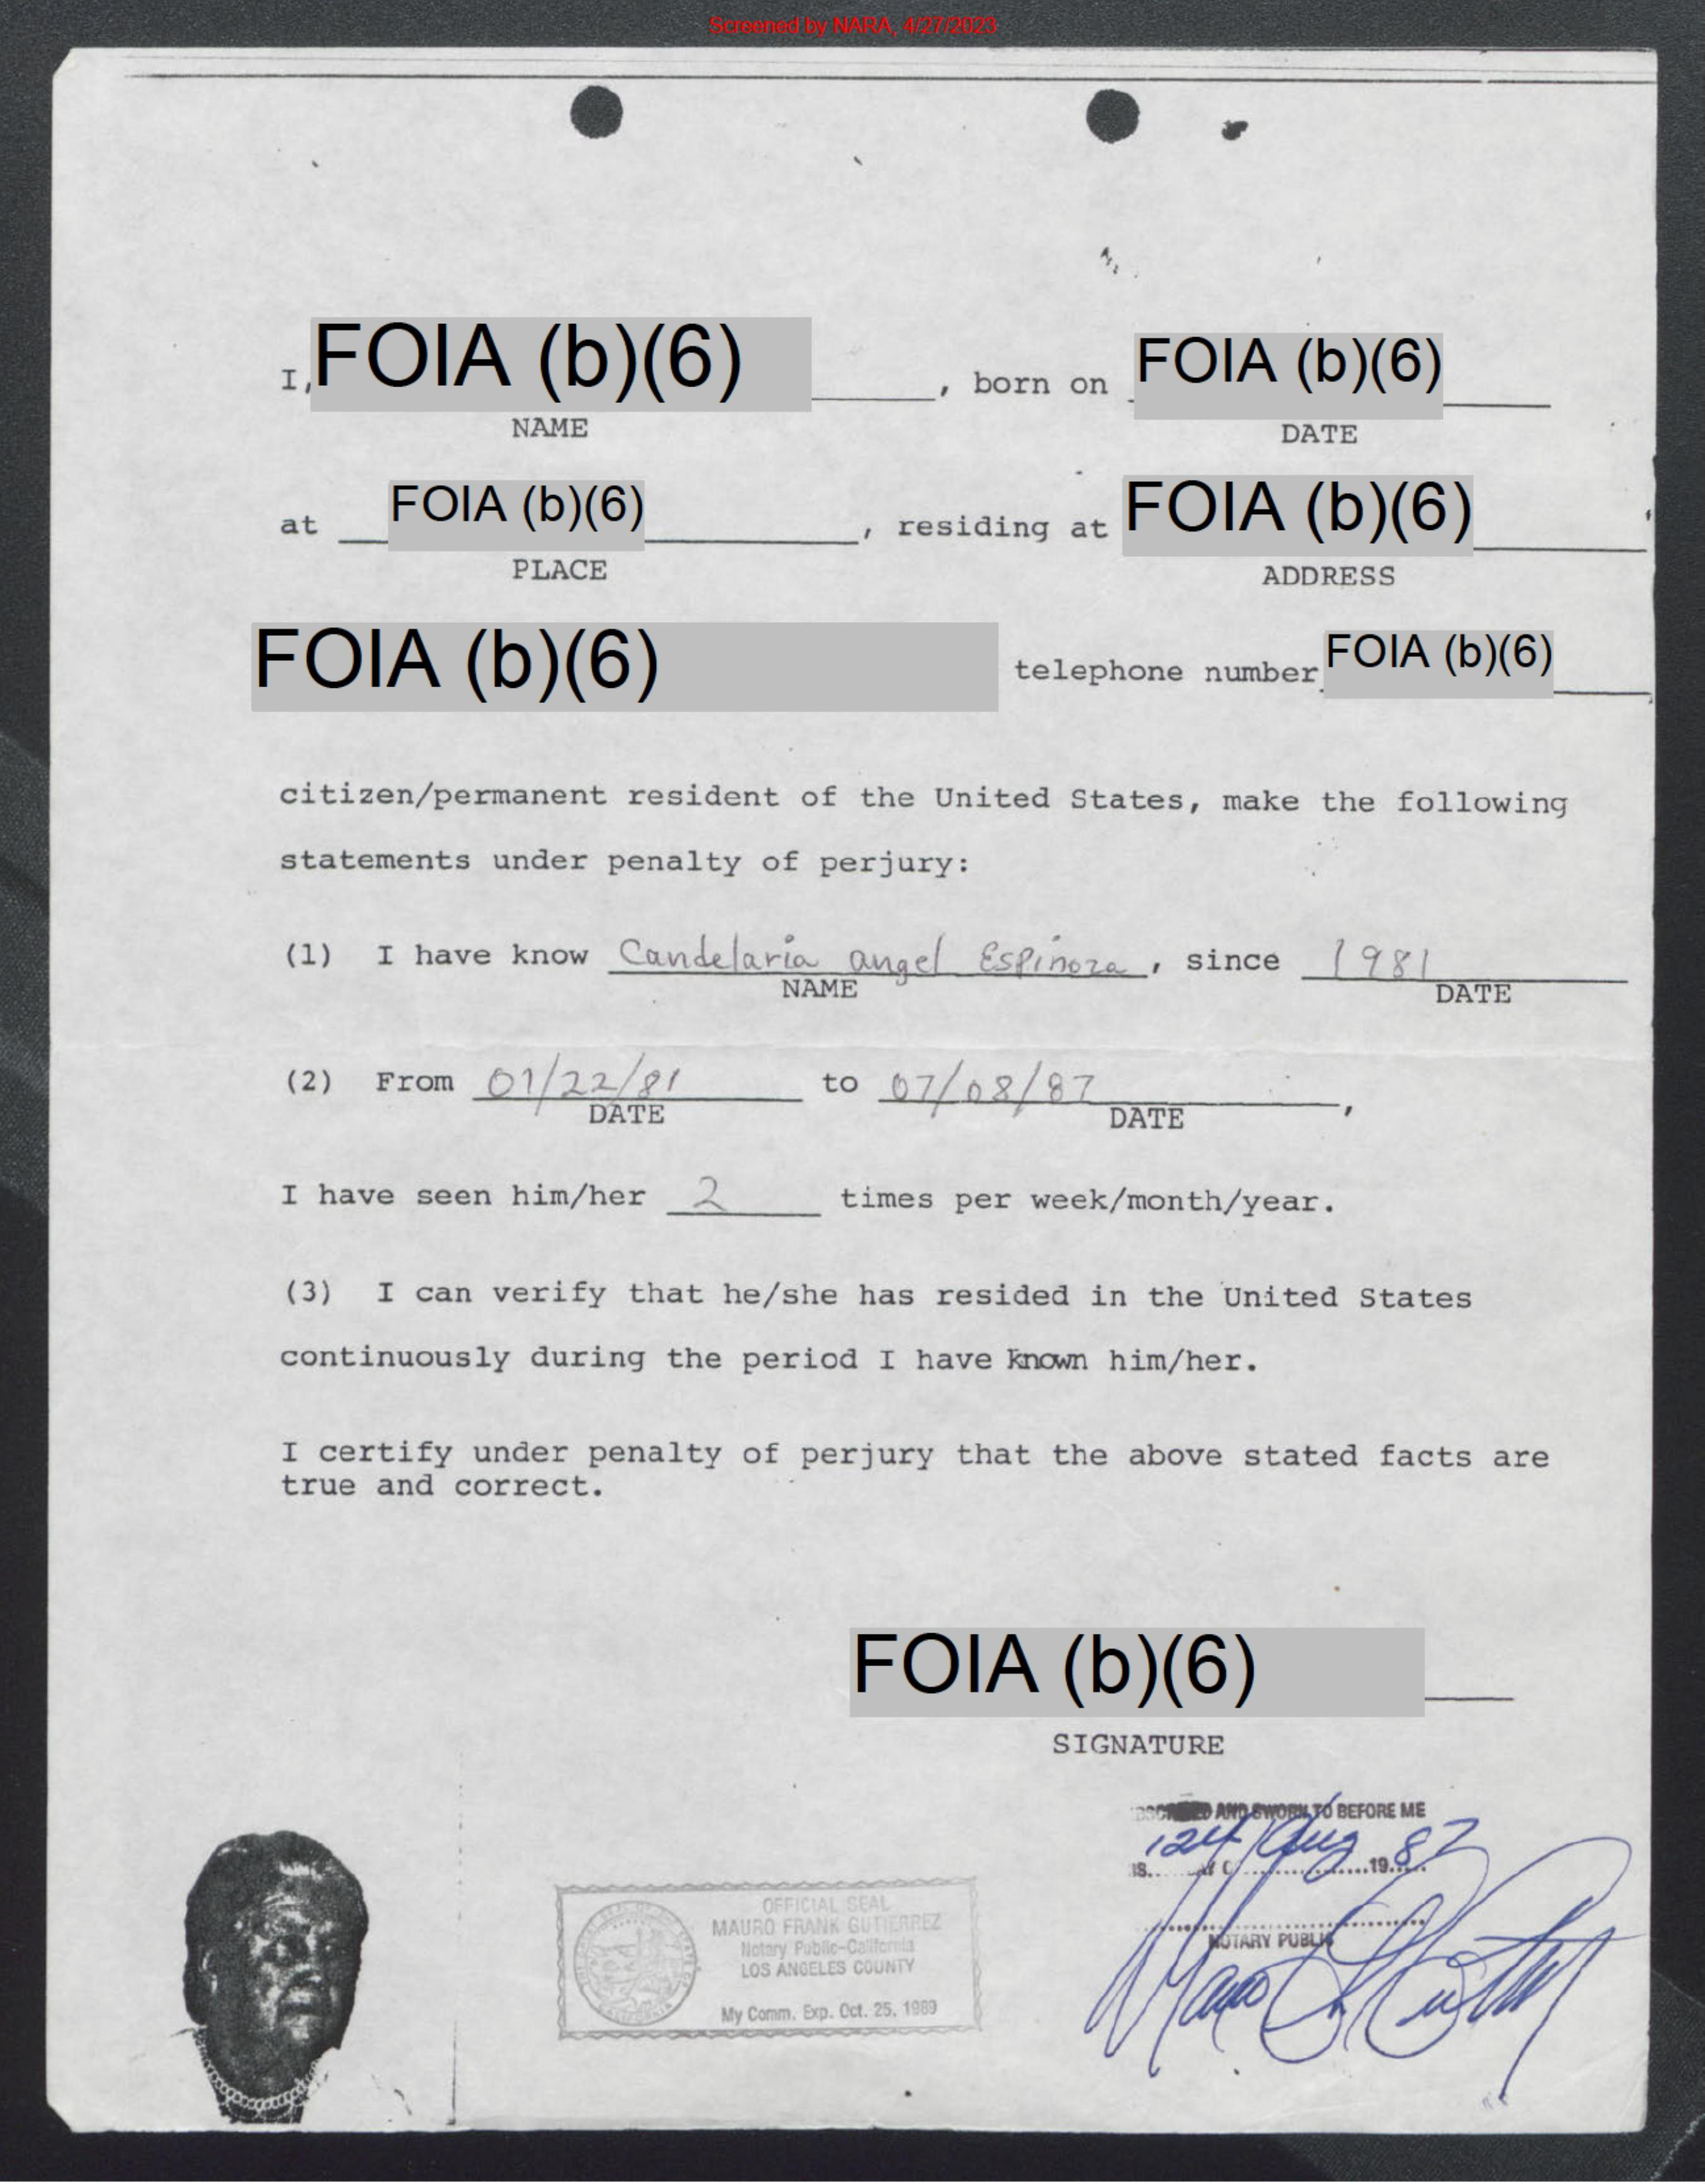 Screened by NARA, 4/27/2023
I, FOIA (b)(6), born on FOIA (b)(6)
NAME DATE
at FOIA (b)(6), residing at FOIA (b)(6)
PLACE ADDRESS
FOIA (b)(6) telephone number FOIA (b)(6)
citizen/permanent resident of the United States, make the following
statements under penalty of perjury:
(1) I have know Candelaria angel Espinoza, since 1981
NAME DATE
(2) From 01/22/81 to 07/08/87,
DATE DATE
I have seen him/her 2 times per week/month/year.
(3) I can verify that he/she has resided in the United States
continuously during the period I have known him/her.
I certify under penalty of perjury that the above stated facts are
true and correct.
FOIA (b)(6)
SIGNATURE
AND SWORN TO BEFORE ME
Aug 19 87
NOTARY PUBLIC
OFFICIAL SEAL
MAURO FRANK GUTIERREZ
Notary Public-California
LOS ANGELES COUNTY
My Comm. Exp. Oct. 25, 1989